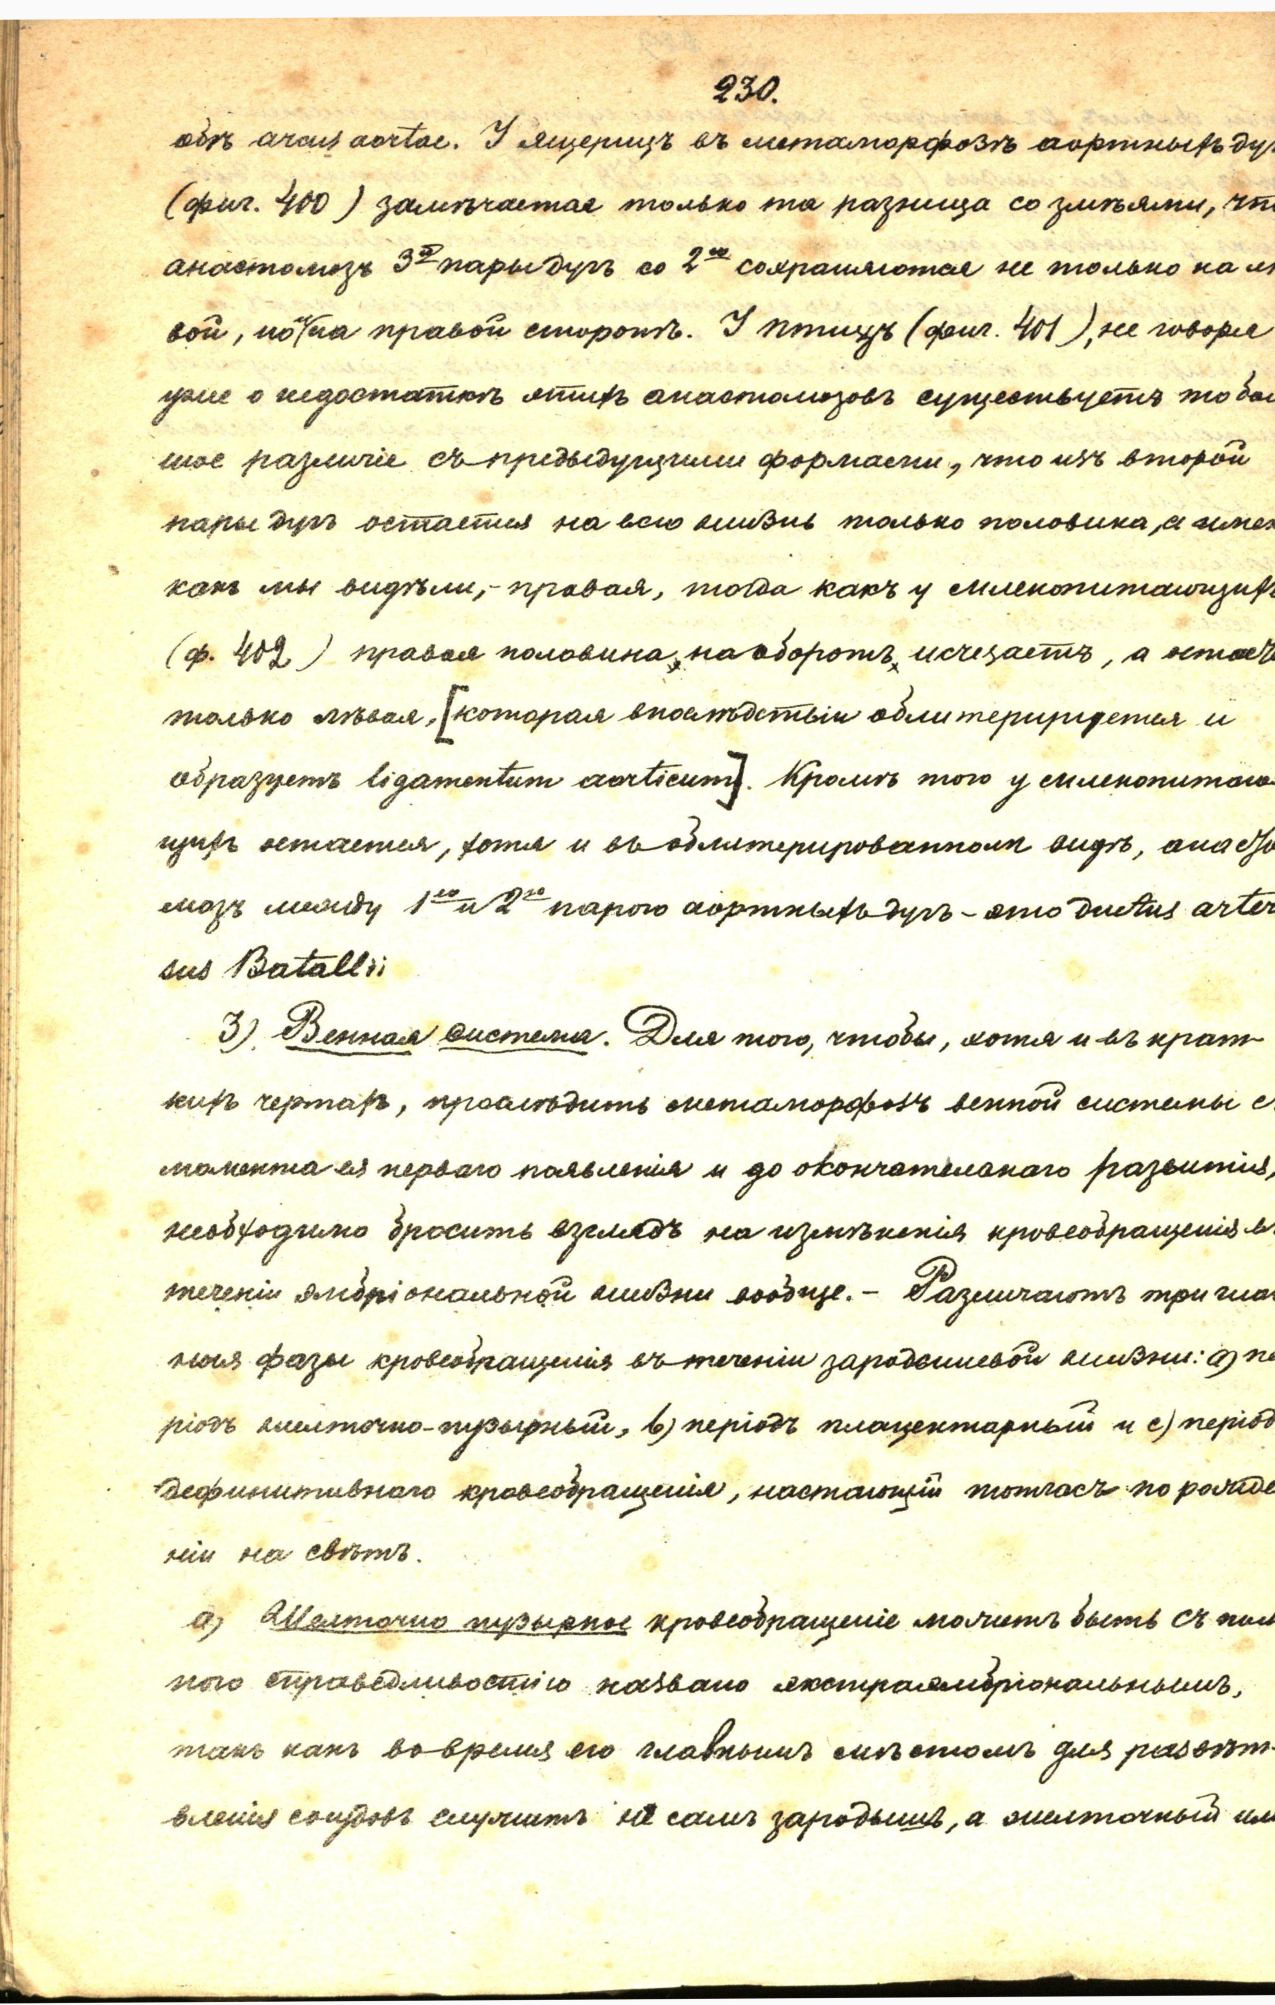 230.
обѣ arcus aortae. У ящерицъ въ метаморфозѣ аортныхъ дуг
(фиг. 400) замѣчается только та разница со змѣями, что
анастомозъ 3й пары дугъ со 2ою сохраняются не только на лѣ
вой, но и на правой сторонѣ. У птицъ (фиг. 401), не говоря
уже о недостаткѣ этихъ анастомозовъ существуетъ то бол
шое различіе съ предыдущими формами, что изъ второй
пары дугъ остается на всю жизнь только половина, а имен
какъ мы видѣли, - правая, тогда какъ у млекопитающихъ
(ф. 402) правая половина, наоборотъ, исчезаетъ, а остает
только лѣвая, [которая впослѣдствіи облитерируется и
образуетъ ligamentum aorticum]. Кромѣ того у млекопитаю-
щихъ остается, хотя и въ облитерированномъ видѣ, анасто
мозъ между 1ою и 2ою парою аортныхъ дугъ - это ductus arter
sus Batallii
3) Венная система. Для того, чтобы, хотя и въ крат-
кихъ чертахъ, прослѣдить метаморфозъ венной системы с
момента ея перваго появленія и до окончательнаго развитія,
необходимо бросить взглядъ на измѣненія кровеобращенія в
теченіи эмбріональной жизни вообще. - Различаютъ три глав
ныя фазы кровеобращенія въ теченіи зародышевой жизни: a) пе
ріодъ желточно-пузырный, b) періодъ плацентарный и c) період
дефинитивнаго кровеобращенія, настающій тотчасъ по рожде
ніи на свѣтъ.
a) Желточно пузырное кровеобращеніе можетъ быть съ пол
ною справедливостію названо экстраэмбріональнымъ,
такъ какъ во время его главнымъ мѣстомъ для развѣт-
вленія сосудовъ служитъ не самъ зародышъ, а желточный или